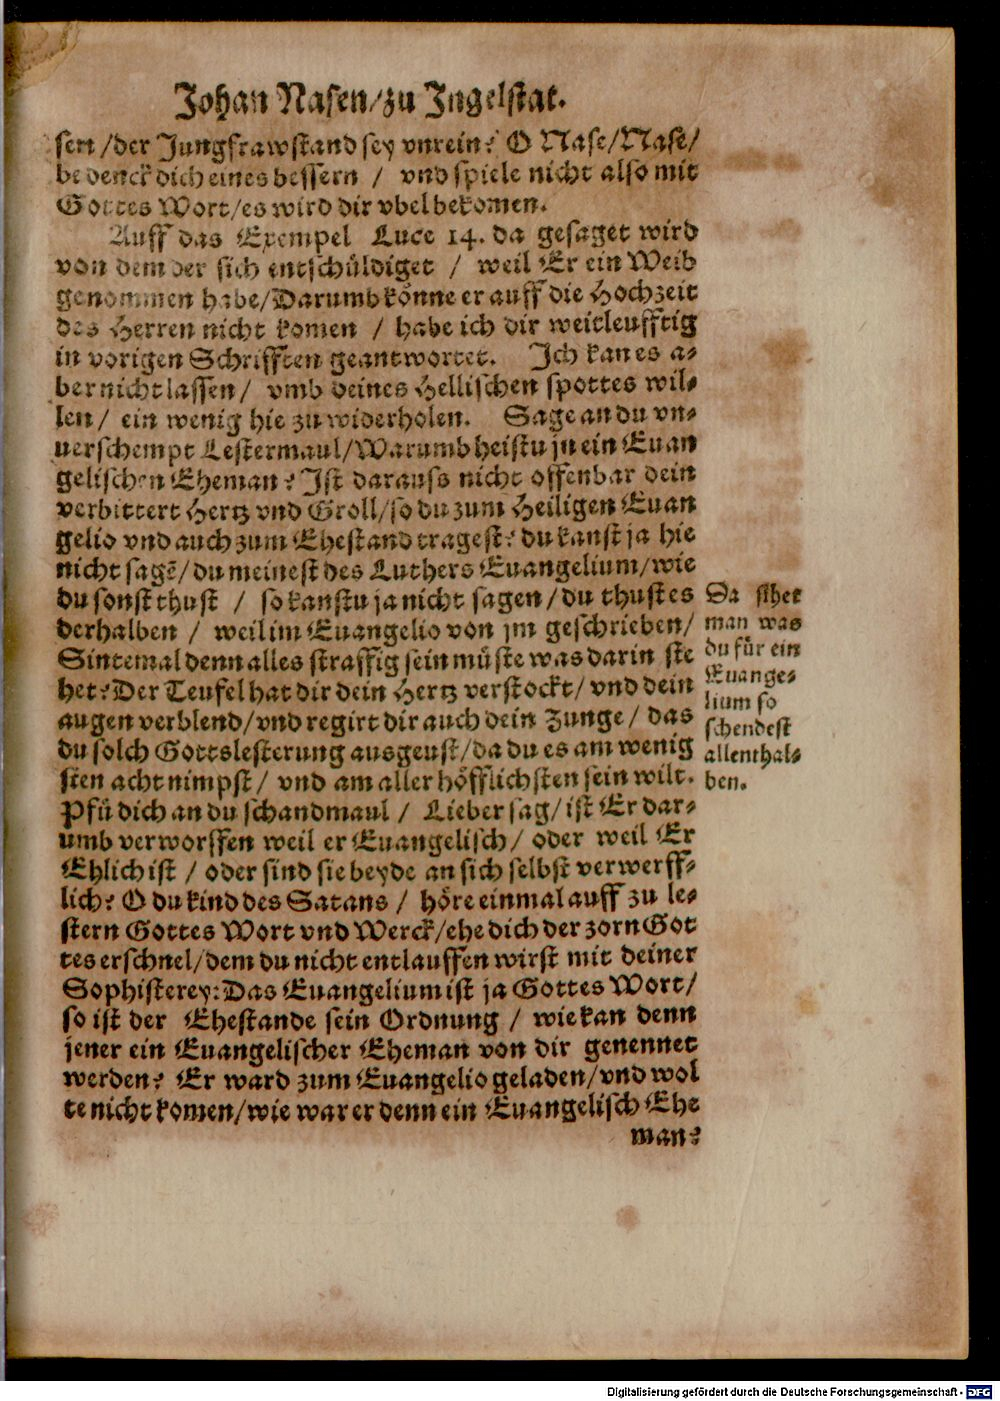 Johan Nasen/zu Ingelstat.
sen/der Jungfrawstand sey vnrein? O Nase/Nase/
bedenck dich eines bessern / vnd spiele nicht also mit
Gottes Wort/es wird dir vbel bekomen.
Auff das Exempel Luce 14. da gesaget wird
von dem der sich entschüldiget / weil Er ein Weib
genommen habe/Darumb könne er auff die Hochzeit
des Herren nicht komen / habe ich dir weitleufftig
in vorigen Schrifften geantwortet. Ich kan es a-
ber nicht lassen/ vmb deines Hellischen spottes wil-
len/ ein wenig hie zu widerholen. Sage an du vn-
uerschempt Lestermaul/Warumb heistu jn ein Euan
gelischen Eheman? Ist darauss nicht offenbar dein
verbittert Hertz vnd Groll/so du zum Heiligen Euan
gelio vnd auch zum Ehestand tragest? du kanst ja hie
nicht sagē/du meinest des Luthers Euangelium/wie
du sonst thust / so kanstu ja nicht sagen/du thust es
derhalben / weil im Euangelio von jm geschrieben/
Sintemal denn alles straffig sein müste was darin ste
het? Der Teufel hat dir dein Hertz verstockt/ vnd dein
augen verblend/vnd regirt dir auch dein Zunge/ das
du solch Gottslesterung ausgeust/da du es am wenig
sten acht nimpst/ vnd am aller höfflichsten sein wilt.
Pfü dich an du schandmaul / Lieber sag/ist Er dar-
umb verworffen weil er Euangelisch/ oder weil Er
Ehlich ist / oder sind sie beyde an sich selbst verwerff-
lich? O du kind des Satans / höre einmal auff zu le-
stern Gottes Wort vnd Werck/ehe dich der zorn Got
tes erschnel/dem du nicht entlauffen wirst mit deiner
Sophisterey: Das Euangelium ist ja Gottes Wort/
so ist der Ehestande sein Ordnung / wie kan denn
jener ein Euangelischer Eheman von dir genennet
werden? Er ward zum Euangelio geladen/vnd wol
te nicht komen/wie war er denn ein Euangelisch Ehe
man?
Da sihet
man was
du für ein
Euange-
lium so
schendest
allenthal-
ben.
Digitalisierung gefördert durch die Deutsche Forschungsgemeinschaft - DFG